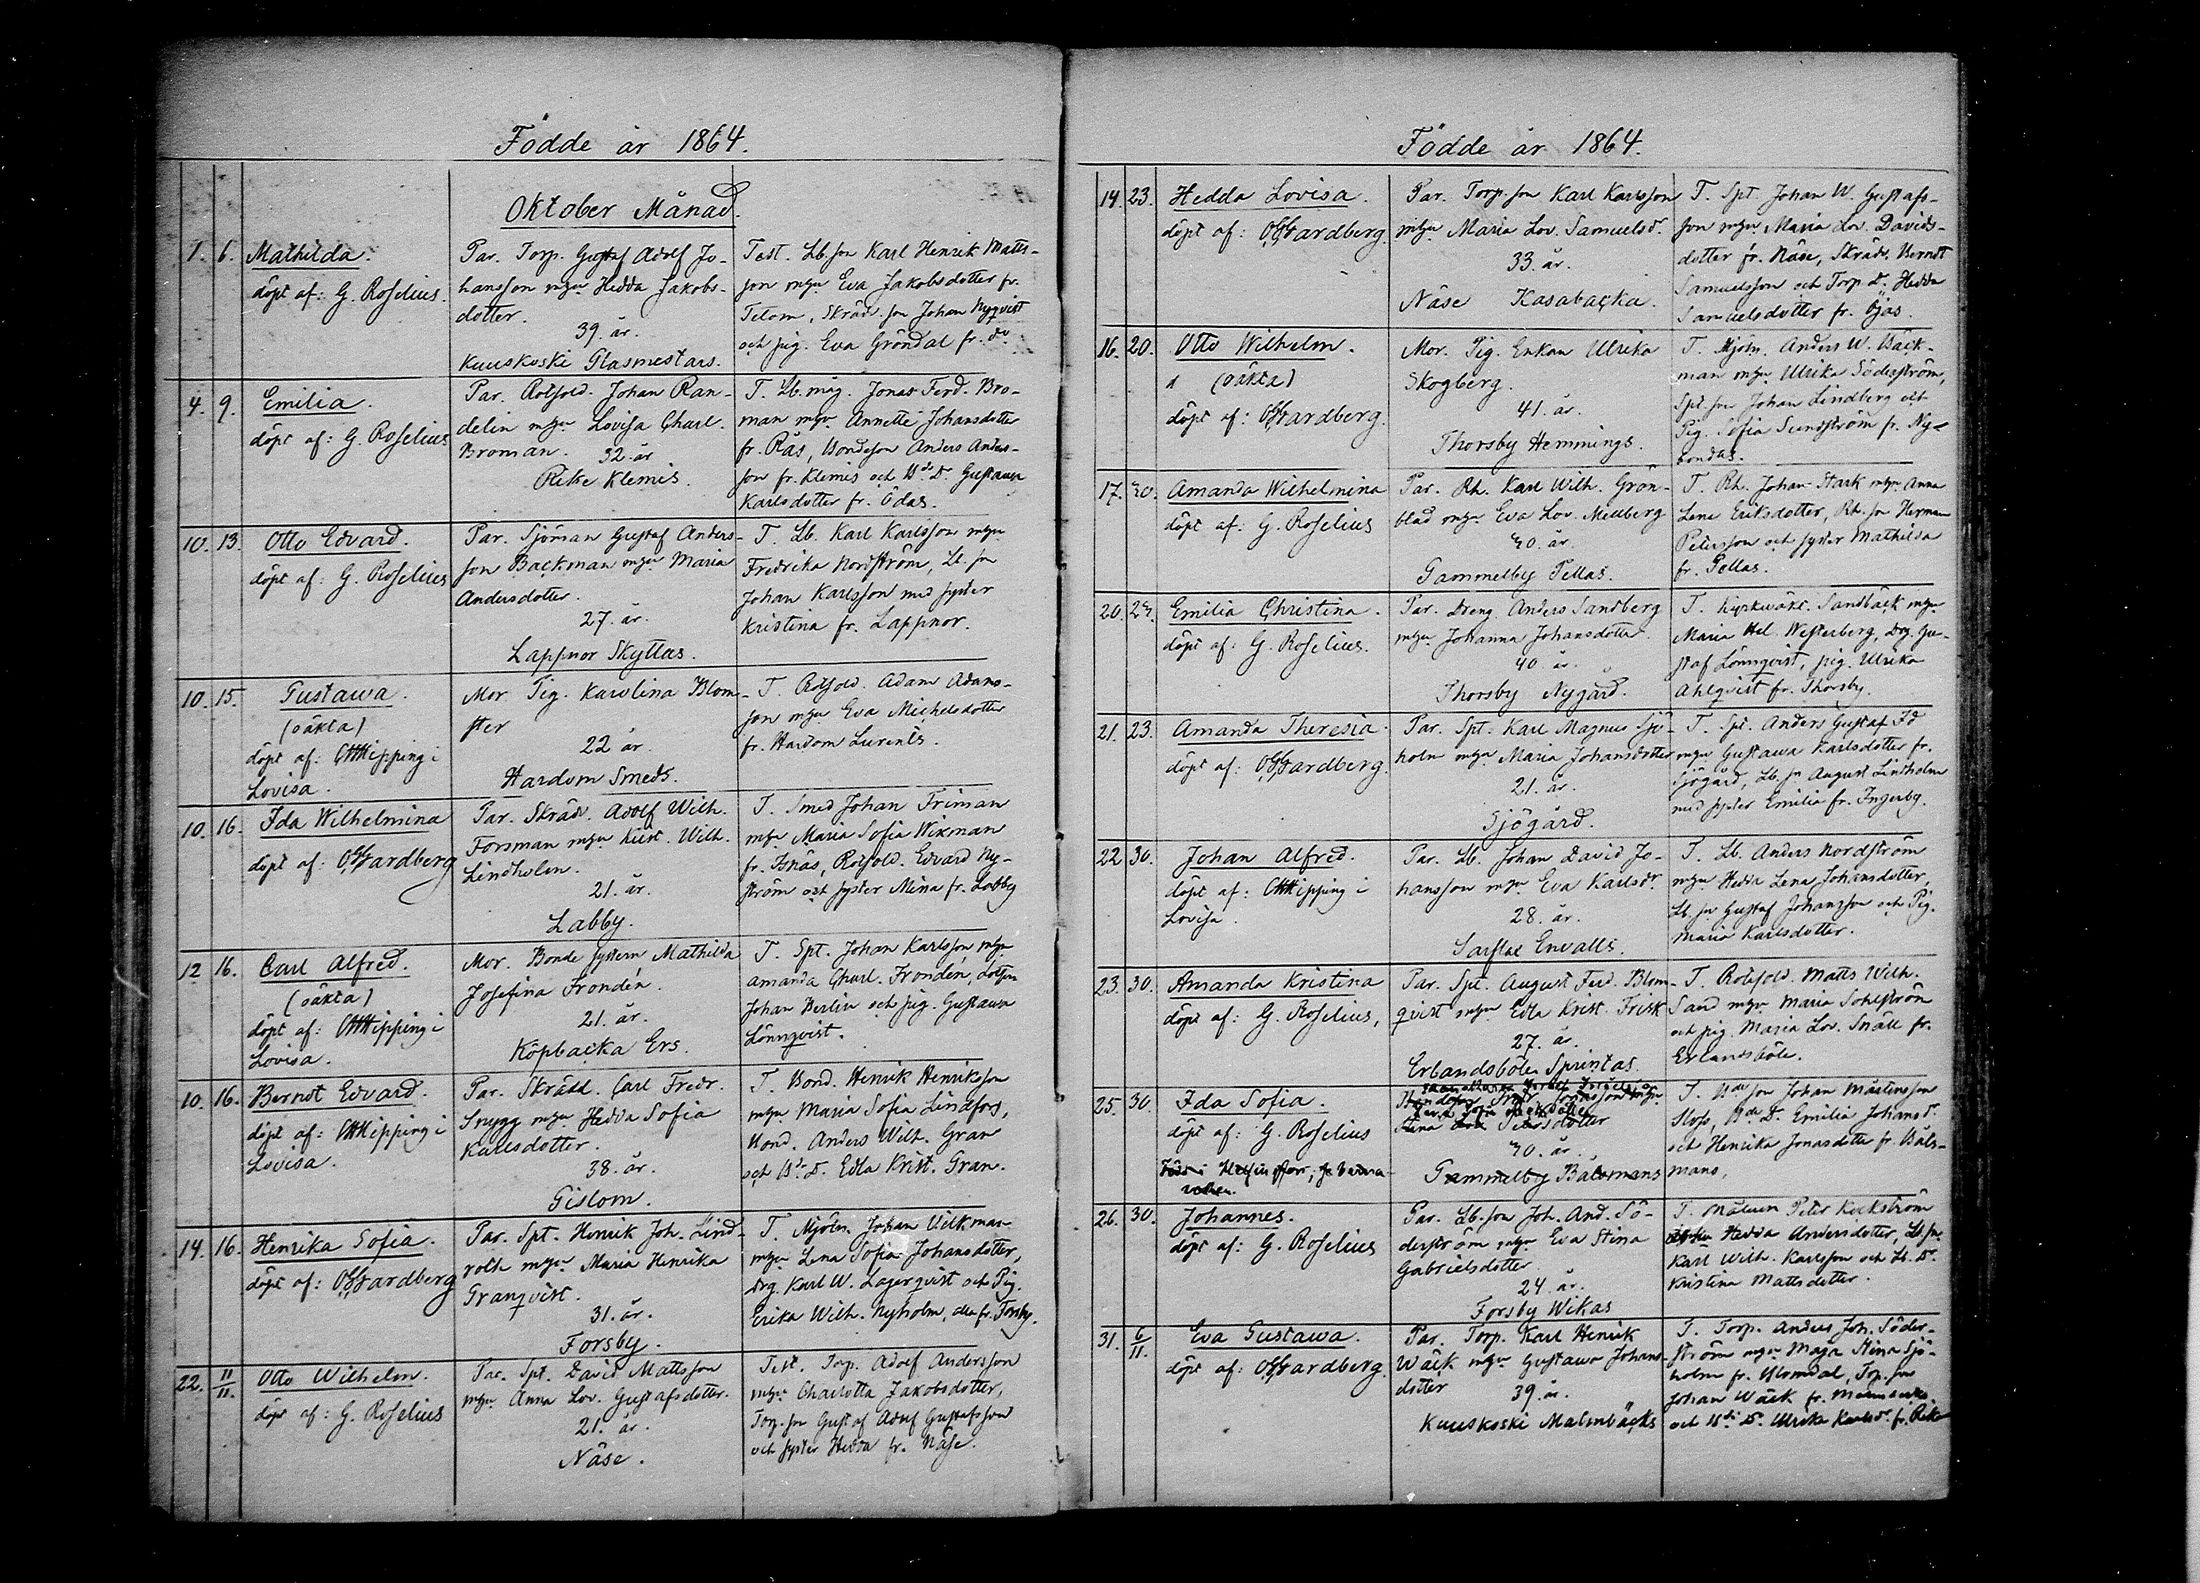 Födde år 1864.
Oktober Månad.
1. 6. Mathilda.
döpt af: G. Roselius.
Par. Torp. Gustaf Adolf Jo-
hansson m hu Hedda Jakobs-
dotter.
39. år.
Kuuskoski Glasmestars.
Test. Lb. son Karl Henrik Matts-
son m hu Eva Jakobsdotter fr.
Tetom, Skräd. son Johan Nyqvist
och pig. Eva Gröndal fr. do
4. 9. Emilia.
döpt af: G. Roselius
Par. Rotsold. Johan Ran-
delin m hu Lovisa Charl.
Broman. 32. år
Rike Klemis.
T. Lb. måg. Jonas Ferd. Bro-
man m hu Annette Johansdotter
fr. Räs, Bondeson Anders Anders-
son fr. Klemis och Bde Dr Gustava
Karlsdotter fr. Ödas.
10. 13. Otto Edvard.
döpt af: G. Roselius
Par. Sjöman Gustaf Anders-
son Backman m hu Maria
Andersdotter.
27. år.
Lappnor Skyttas.
T. Lb. Karl Karlsson m hu
Fredrika Nordström, Lb. son
Johan Karlsson med syster
Kristina fr. Lappnor.
10. 15. Gustawa.
(oäkta)
döpt af: Kipping i
Lovisa.
Mor Pig. Karolina Blom-
ster
22 år.
Hardom Smeds.
T. Rotsold. Adam Adams-
son m hu Eva Michelsdotter
fr. Hardom Lurents.
10. 16. Ida Wilhelmina
döpt af: Gardberg
Par. Skräd. Adolf Wilh.
Forsman m hu Wilh.
Lindholm.
21. år.
Labby.
T. Smed Johan Friman
m hu Maria Sofia Wikman
fr. Isnäs, Rotsold. Edvard Ny-
ström och syster Mina fr. Labby
12 16. Carl Alfred.
(oäkta)
döpt af: Kipping i
Lovisa.
Mor. Bonde systern Mathilda
Josefina Frondén.
21. år.
Köpbacka Ers.
T. Spt. Johan Karlsson m hu
Amanda Charl. Frondén, Lotsen
Johan Berlin och pig. Gustawa
Lönnqvist.
10. 16. Berndt Edvard.
döpt af: Kipping i
Lovisa.
Par. Skrädd. Carl Fredr.
Snygg m hu Hedda Sofia
Karlsdotter.
38. år.
Gislom.
T. Bond. Henrik Henriksson
m hu Maria Sofia Lindfors,
Bond. Anders Wilh. Gran
och Bde D. Edla Krist. Gran.
14. 16. Henrika Sofia.
döpt af: Gardberg
Par. Spt. Henrik Joh. Lind-
roth m hu Maria Henrika
Granqvist.
31. år.
Forsby.
T. Mjöln. Johan Wilkman
m hu Lena Sofia Johansdotter,
Drg. Karl W. Lagerqvist och Pig.
Erika Wilh. Nyholm, alla fr. Forsby.
22. 11/11. Otto Wilhelm.
döpt af: G. Roselius
Par. Spt. David Mattsson
m hu Anna Lov. Gustafsdotter.
21. år.
Näse.
Test. Torp. Adolf Andersson
m hu Charlotta Jakobsdotter,
Torp. son Gustaf Adolf Gustafsson
och syster Hedda fr. Näse.
Födde år 1864.
14. 23. Hedda Lovisa.
döpt af: Gardberg.
Par. Torp. son Karl Karlsson
m hu Maria Lov. Samuelsdr.
33. år.
Näse Kasabacka.
T. Spt. Johan W. Gustafs-
son m hu Maria Lov. Davids-
dotter fr. Näse, Skräd. Berndt
Samuelsson och Torp. D. Hedda
Samuelsdotter fr. Öjas.
16. 20. Otto Wilhelm.
(oäkta)
döpt af: Gardberg.
Mor. Pig. Enkan Ulrika
Skogberg.
41. år.
Thorsby Hemmings.
T. Mjöln. Anders W. Bäck-
man m hu Ulrika Söderström,
Spt. son Johan Lindberg och
Pig. Sofia Sundström fr. Ny-
bondas.
17. 30. Amanda Wilhelmina
döpt af: G. Roselius
Par. Rh. Karl Wilh. Grön-
blad m hu Eva Lov. Mellberg
30. år.
Gammelby Pellas.
T. Rh. Johan Stark m hu Anna
Lena Eriksdotter, Rh. son Herman
Petersson och syster Mathilda
fr. Pellas.
20. 23. Emilia Christina.
döpt af: G. Roselius.
Par. Dreng Anders Sandberg
m hu Johanna Johansdotter
40. år.
Thorsby Nygård.
T. Kyrkwäkt. Sandbäck m hu
Maria Hel. Westerberg, Drg. Gu-
staf Lönnqvist, pig. Ulrika
Ahlqvist fr. Thorsby.
21. 23. Amanda Theresia.
döpt af: Gardberg.
Par. Spt. Karl Magnus Sjö-
holm m hu Maria Johansdotter
21. år.
Sjögård.
T. Spt. Anders Gustaf Fd
m hu Gustawa Karlsdotter fr.
Sjögård, Lb. sn August Lindholm
med syster Emilia fr. Ingerby.
22 30. Johan Alfred.
döpt af: Kipping i
Lovisa.
Par. Lb. Johan David Jo-
hansson m hu Eva Karlsdr
28. år.
Sarflax Envalls.
T. Lb. Anders Nordström
m hu Hedda Lena Johansdotter,
Lb. sn Gustaf Johansson och Pig.
Maria Karlsdotter.
23. 30. Amanda Kristina
döpt af: G. Roselius,
Par. Spt. August Ferd. Blom-
qvist m hu Edla Krist. Frisk
27. år.
Erlandsböle Sprintas
T. Rotsold. Matts Wilh.
Sand m hu Maria Sohlström
och pig. Maria Lov. Snäll fr.
Erlandsböle.
25. 30. Ida Sofia.
döpt af: G. Roselius
30. år.
Gammelby Bålsmans
T. Bde son Johan Mårtensson
Slags, Bde D. Emilia Johansdr.
och Henrika Jonasdotter fr. Båls-
mans,
26. 30. Johannes.
döpt af: G. Roselius
Par. Lb. son Joh. And. Sö-
derström m hu Eva Stina
Gabrielsdotter
24 år.
Forsby Wikas
T. Målaren Peter Kockström
Hedda Andersdotter, Lb. sn
Karl Wilh. Karlsson och Lb. Dr.
Kristina Mattsdotter.
31. 6/11. Eva Gustawa.
döpt af: Gardberg.
Par. Torp. Karl Henrik
Wäck m hu Gustawa Johans-
dotter 39. år.
Kuuskoski Malmbäcks
T. Torp. Anders Joh. Söder-
ström m hu Maja Stina Sjö-
holm fr. Blomdal, Torp. son
Johan Wäck fr. Malmbacka
och Bde Dr. Ulrika Karlsdr. fr. Rike